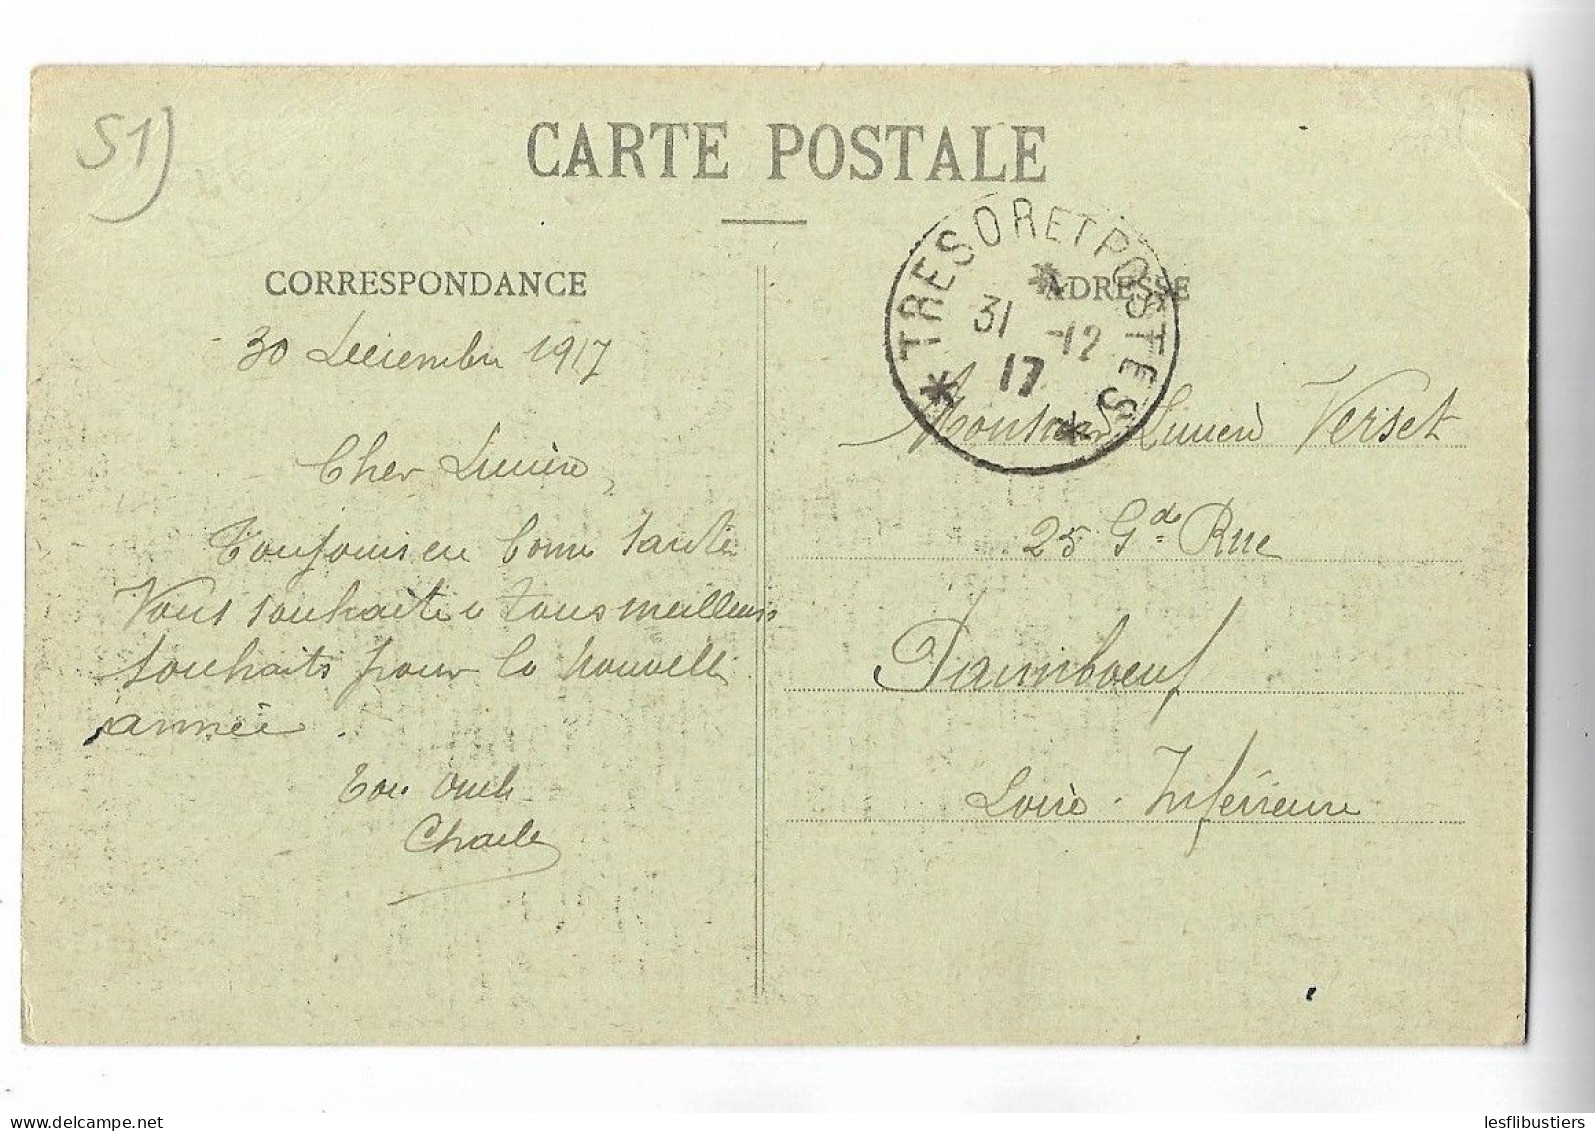 51)
CARTE POSTALE
CORRESPONDANCE
30 Décembre 1917
Cher Lucien,
Toujours en bonne santé
Vous souhaite à tous meilleurs
souhaits pour la nouvelle
année.
Ton oncle
Charles
TRESOR ET POSTES
31 -12
17
ADRESSE
Monsieur Lucien Verset
25 Gde Rue
Paimboeuf
Loire-Inférieure
lesflibustiers